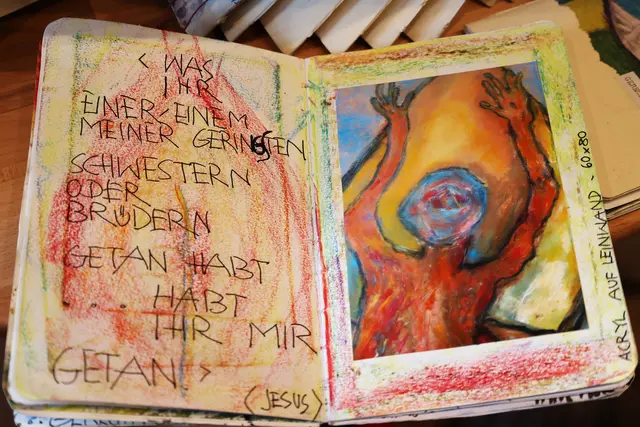 < WAS
IHR
EINER/EINEM
MEINER GERINGSTEN
SCHWESTERN
ODER
BRÜDERN
GETAN HABT
... HABT
IHR MIR
GETAN >
(JESUS)
ACRYL AUF LEINWAND - 60x80